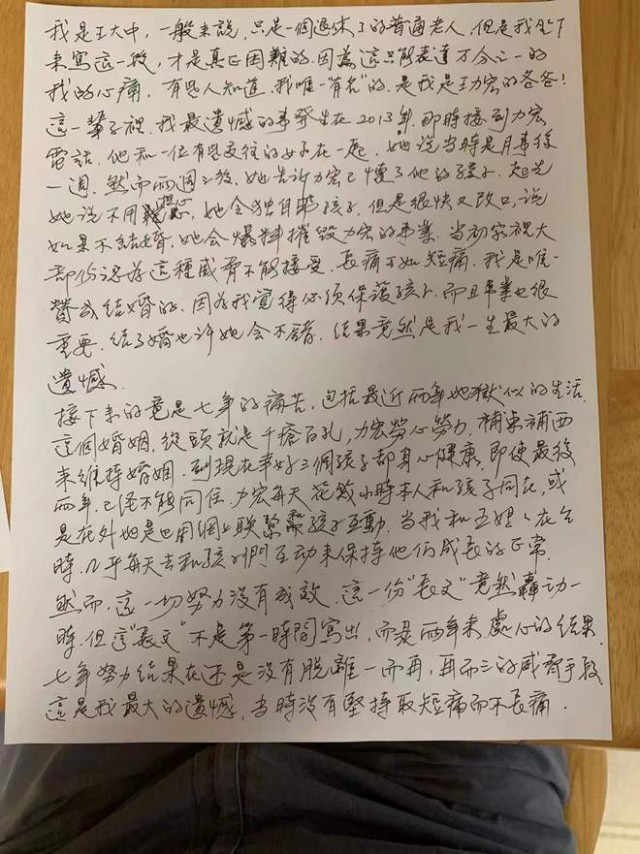 我是王大中，一般來說，只是一個退休了的普通老人，但是我坐下
來寫這一段，才是真正困難的。因為這只能表達万分之一的
我的心痛。有些人知道，我唯一"有名"的，是我是王力宏的爸爸！
這一輩子裡，我最遺憾的事發生在2013年，那時接到力宏
電話，他和一位有些交往的女子在一起，她說當時是月事後
一週，然而兩週之後，她告訴力宏已懷了他的孩子，起先
她說不用擔心，她会獨自帶孩子，但是很快又改口，說
如果不結婚，她会爆料摧毀力宏的事業，當初家裡大
部份認為這種威脅不能接受，長痛不如短痛，我是唯一
贊成結婚的，因為我覺得必須保護孩子，而且事業也很
重要，結了婚也許她会不錯，結果竟然是我一生最大的
遺憾。
接下來的竟是七年的痛苦，包括最近兩年地獄似的生活，
這個婚姻，從頭就是千瘡百孔，力宏勞心勞力，補東補西
來維持婚姻，到現在幸好三個孩子都身心健康，即使最後
兩年，已經不能同住，力宏每天花幾小時本人和孩子同在，或
是在外地是也用網上联繫孩子互動，當我和王姐々在台
時，几乎每天去和孩子們互动來保持他们成長的正常
然而，這一切努力没有成效，這一份"長文"竟然轟动一
時，但這"長文"不是第一時間寫出，而是兩年來，處心的結果
七年努力結果在还是没有脱離一而再，再而三的威脅手段
這是我最大的遺憾，当時没有堅持取短痛而不長痛．